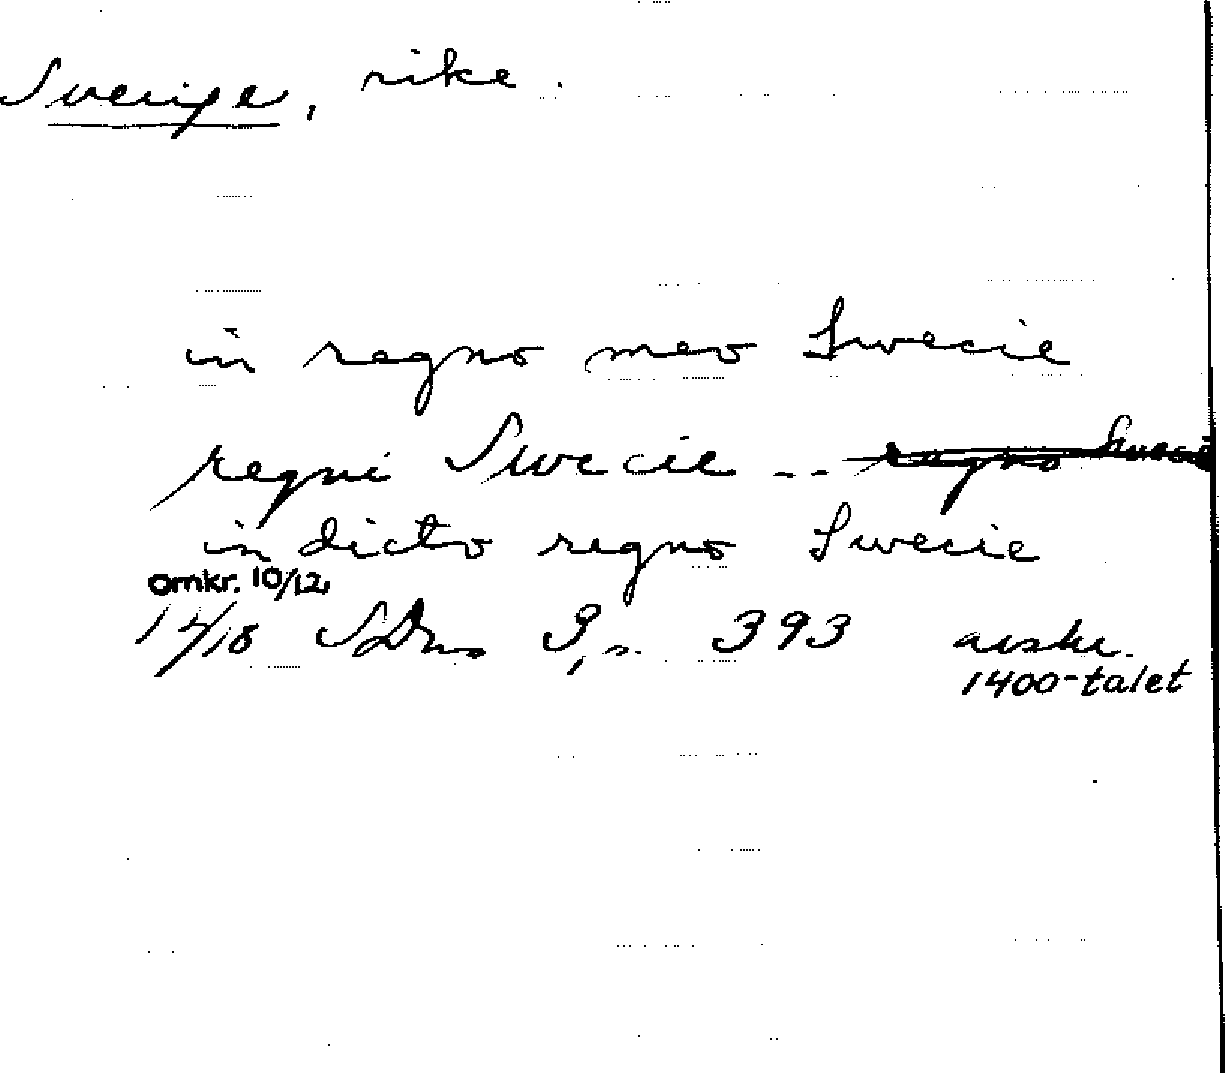 Sverige, rike.
in regno meo Swecie
regni Swecie -- regno Swecie
in dicto regno Swecie
omkr. 10/12
1418 SDns 3, s. 393 avskr.
1400-talet